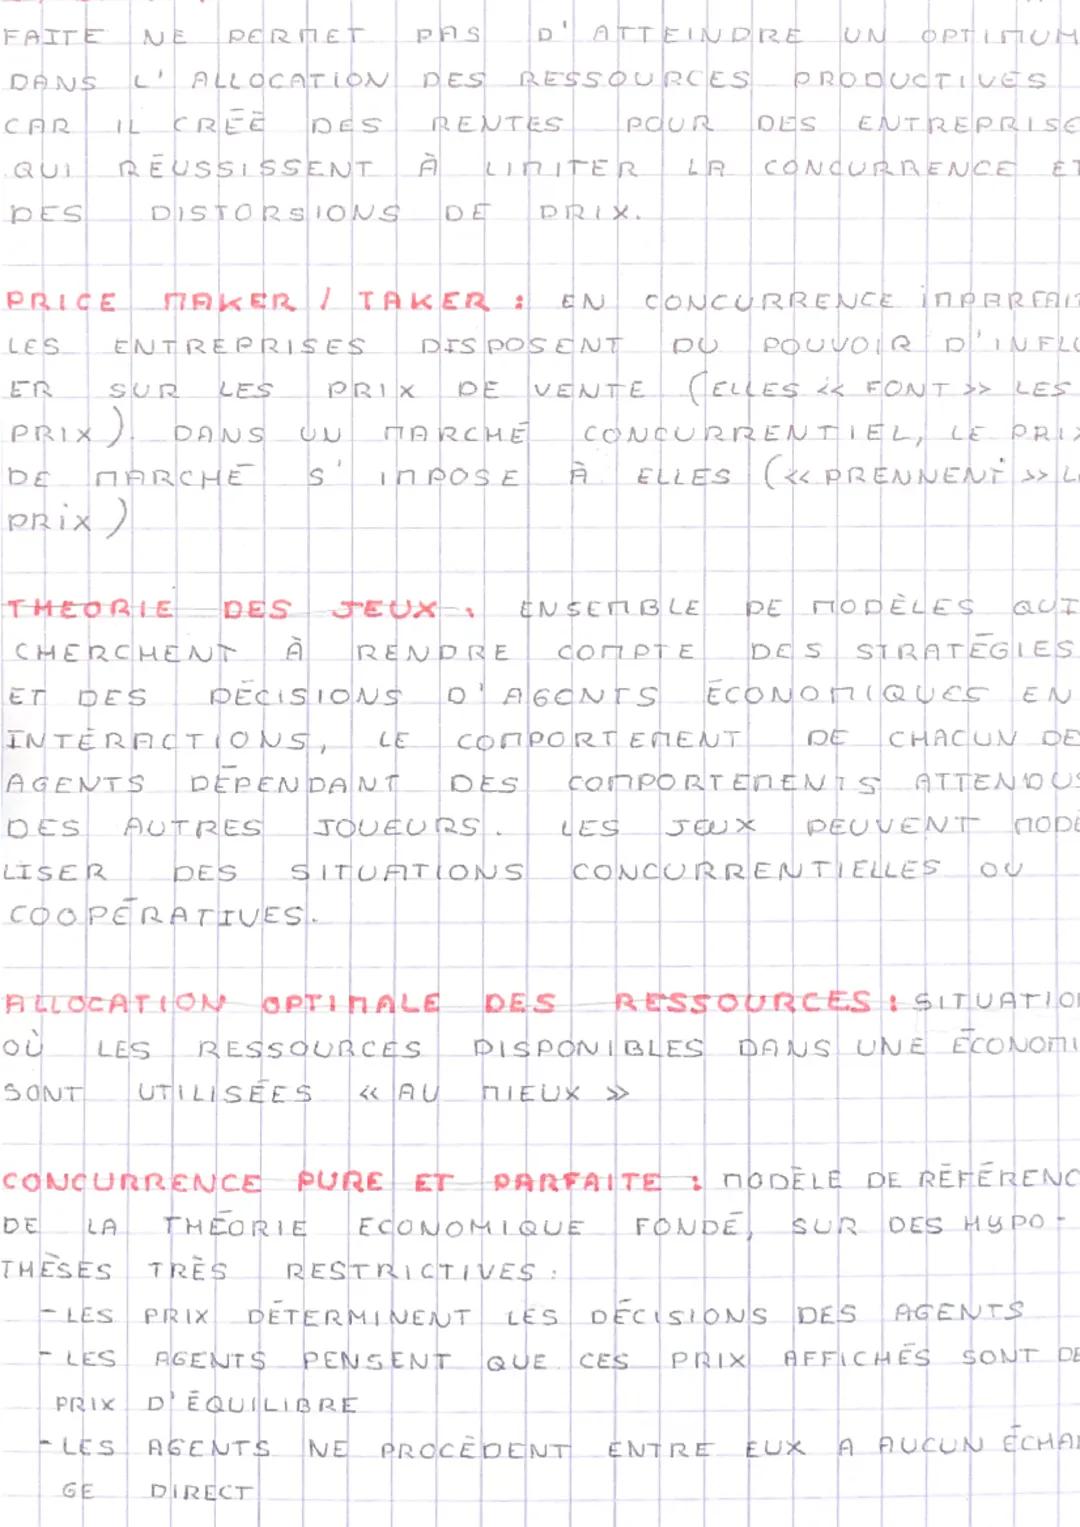 FAITE NE PERMET PAS D'ATTEINDRE UN OPTIMUM
DANS L'ALLOCATION DES RESSOURCES PRODUCTIVES
CAR IL CRÉE DES RENTES POUR DES ENTREPRISE
QUI RÉUSSISSENT À LIMITER LA CONCURRENCE ET
DES DISTORSIONS DE PRIX.
PRICE MAKER / TAKER : EN CONCURRENCE IMPARFAIT
LES ENTREPRISES DISPOSENT DU POUVOIR D'INFLU
ER SUR LES PRIX DE VENTE (ELLES « FONT » LES
PRIX). DANS UN MARCHÉ CONCURRENTIEL, LE PRIX
DE MARCHÉ S'IMPOSE À ELLES (« PRENNENT » LE
PRIX)
THEORIE DES JEUX : ENSEMBLE DE MODÈLES QUI
CHERCHENT À RENDRE COMPTE DES STRATÉGIES
ET DES DÉCISIONS D'AGENTS ÉCONOMIQUES EN
INTÉRACTIONS, LE COMPORTEMENT DE CHACUN DE
AGENTS DÉPENDANT DES COMPORTEMENTS ATTENDUS
DES AUTRES JOUEURS. LES JEUX PEUVENT MODÉ
LISER DES SITUATIONS CONCURRENTIELLES OU
COOPÉRATIVES.
ALLOCATION OPTIMALE DES RESSOURCES : SITUATION
OÙ LES RESSOURCES DISPONIBLES DANS UNE ÉCONOMI
SONT UTILISÉES « AU MIEUX »
CONCURRENCE PURE ET PARFAITE : MODÈLE DE RÉFÉRENC
DE LA THÉORIE ECONOMIQUE FONDÉ, SUR DES HYPO-
THÈSES TRÈS RESTRICTIVES :
- LES PRIX DÉTERMINENT LES DÉCISIONS DES AGENTS
- LES AGENTS PENSENT QUE CES PRIX AFFICHÉS SONT DE
PRIX D'ÉQUILIBRE
- LES AGENTS NE PROCÈDENT ENTRE EUX A AUCUN ÉCHAN
GE DIRECT